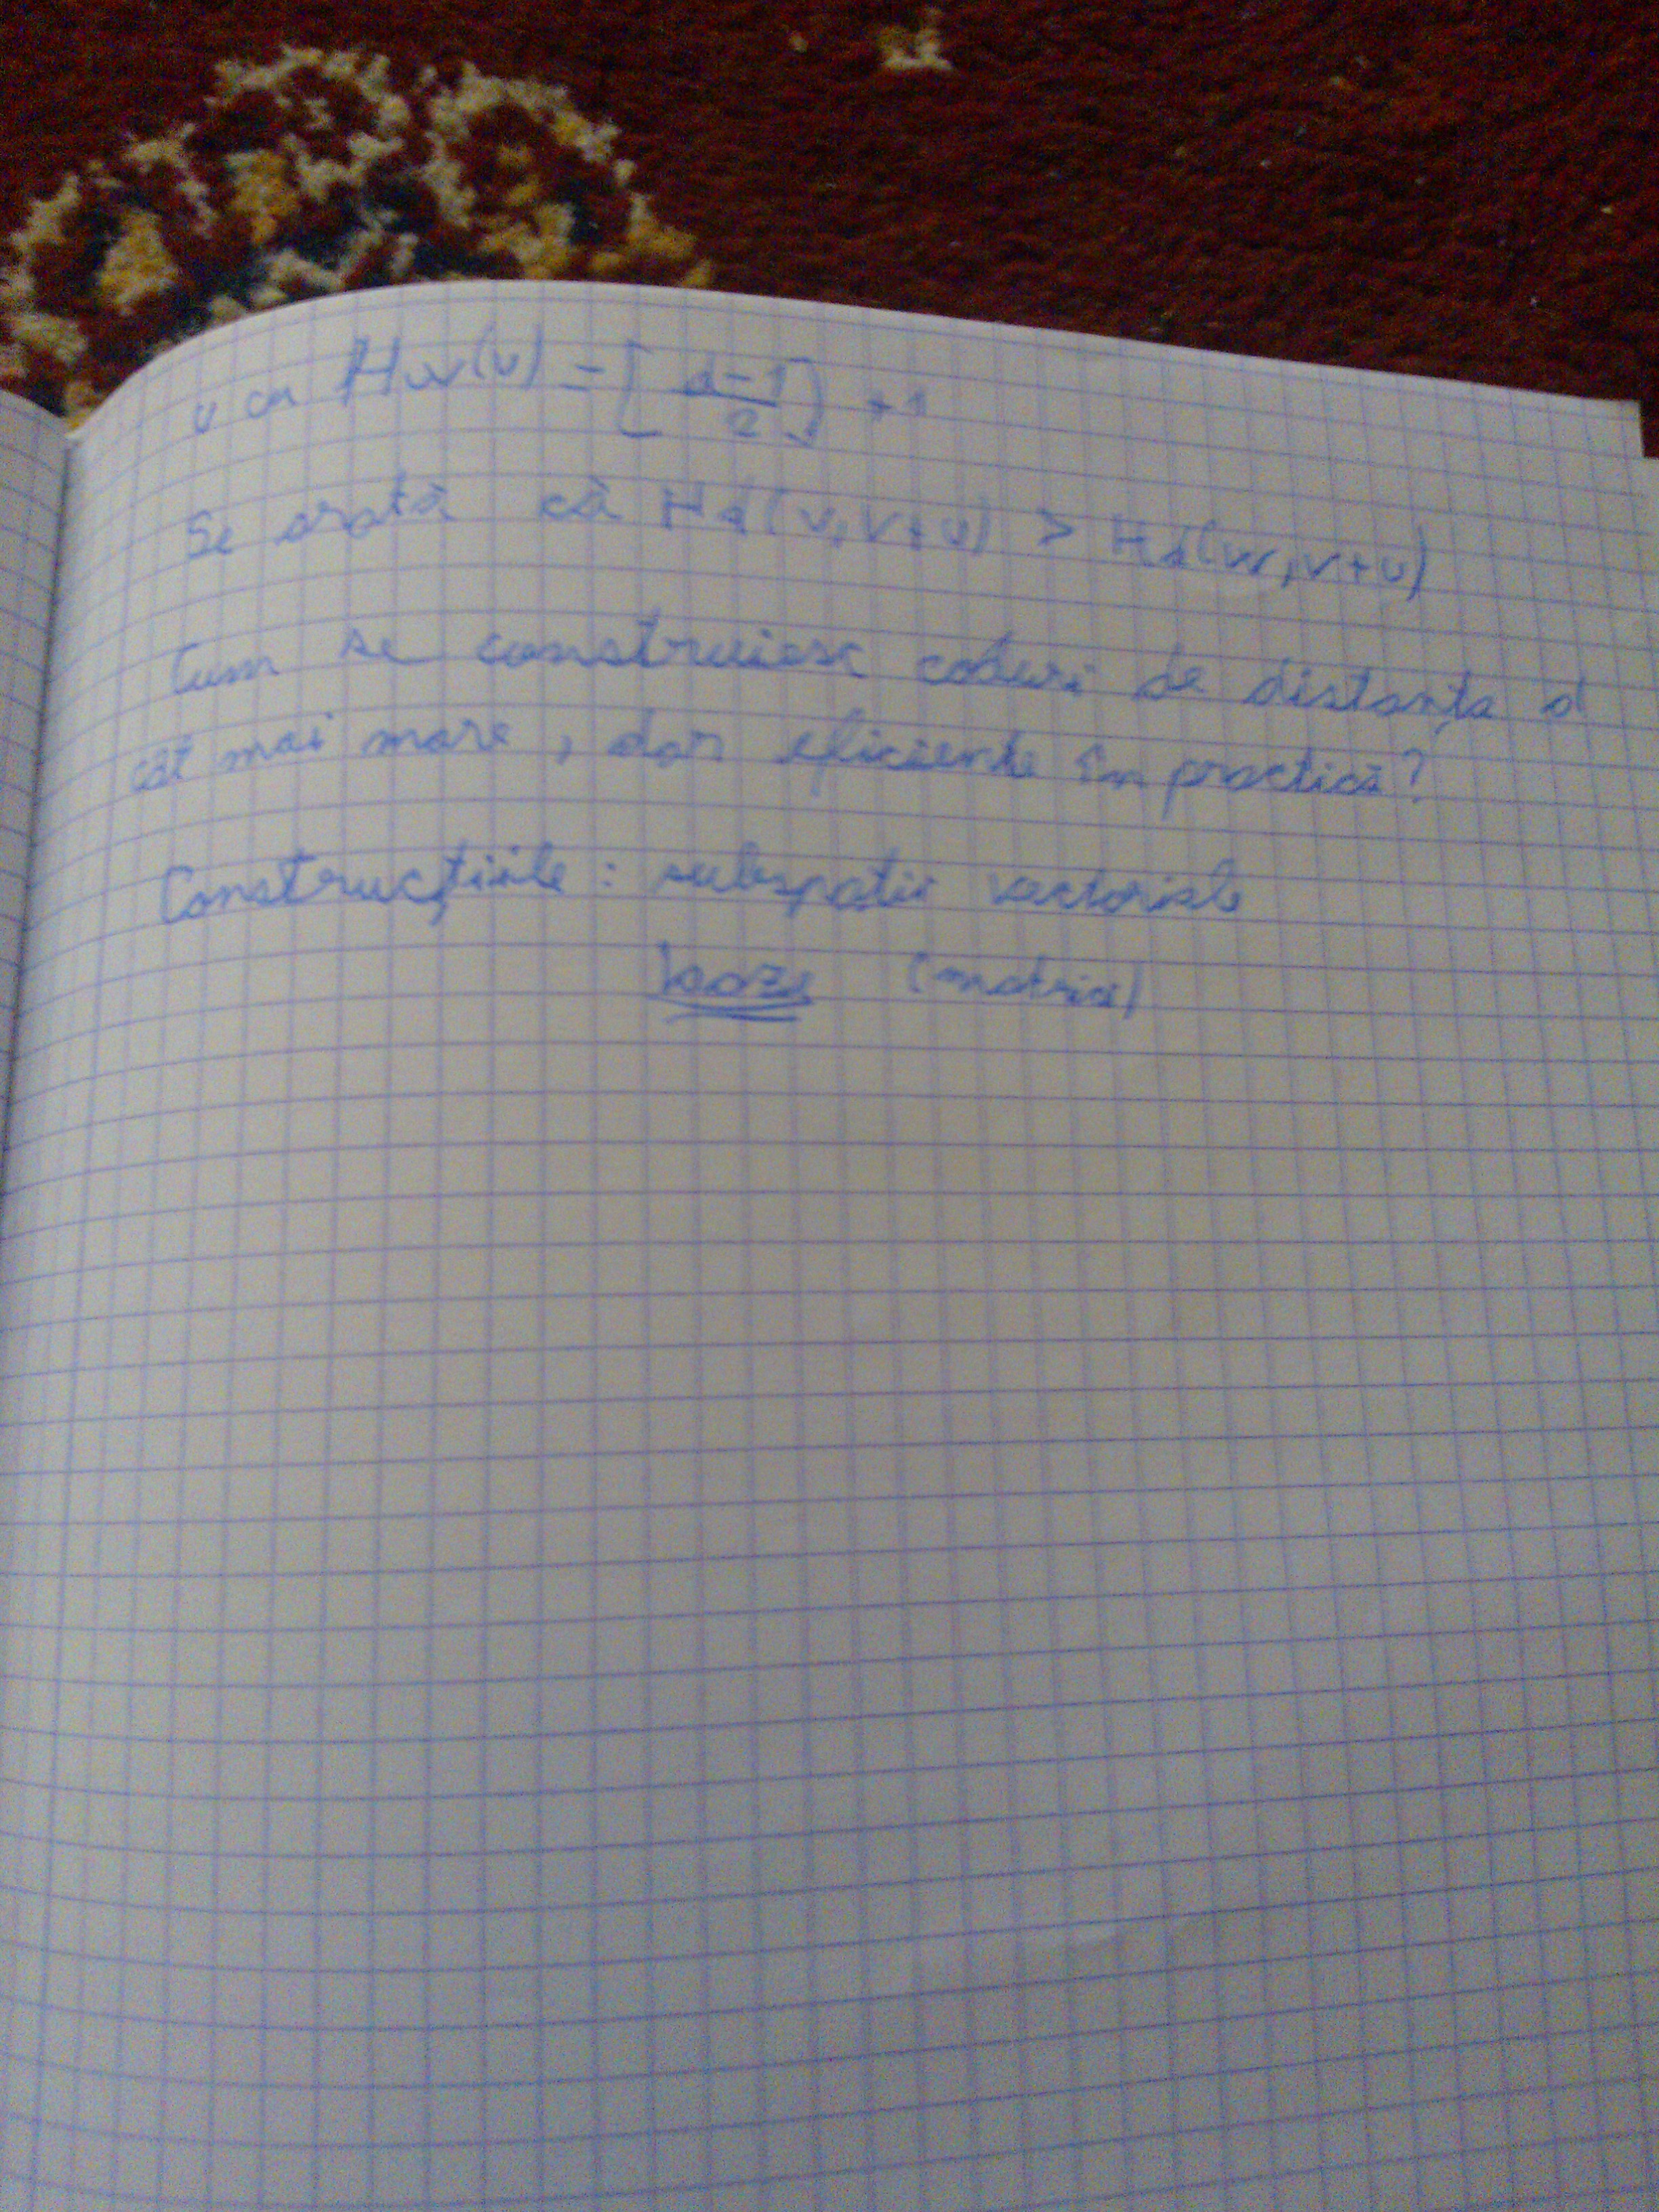 u cu Hw(u) = [d-1/2] + 1
Se arată că Hd(v, v+u) > Hd(w, v+u)
Cum se construiesc coduri de distanța d
cât mai mare, dar eficiente în practică?
Construcțiile: subspații vectoriale
baze (matrici)